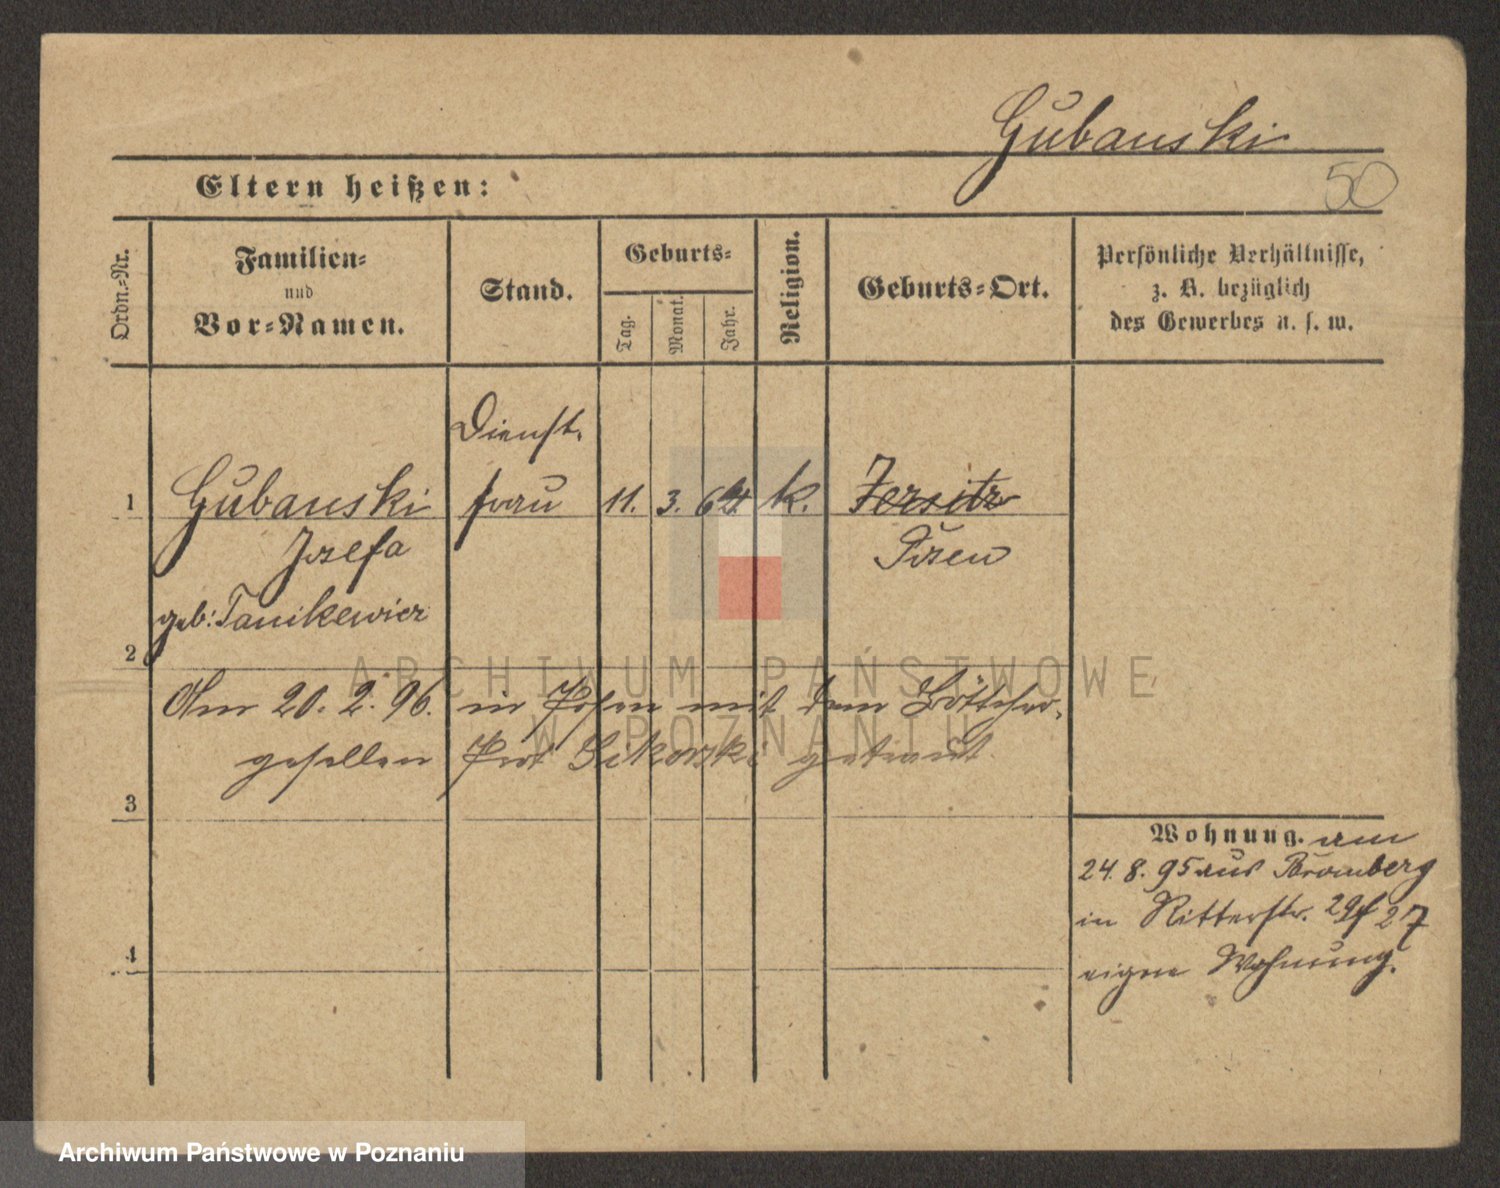 Gubanski
50
Eltern heißen:
Ordn.-Nr.
Familien-
und
Vor-Namen.
Stand.
Geburts-
Tag.
Monat.
Jahr.
Religion.
Geburts-Ort.
Persönliche Verhältnisse,
z. B. bezüglich
des Gewerbes u. s. w.
Dienst-
1 Gubanski frau 11. 3. 64 k. Jersitz
Josefa Posen
geb: Tanikewicz
2
Am 20. 2. 96. in Posen mit dem Böttcher-
gesellen Sikorski getraut.
3
Wohnung. am
24. 8. 95 aus Bromberg
in Ritterstr. 27
eigne Wohnung.
4
ARCHIWUM PAŃSTWOWE
W POZNANIU
Archiwum Państwowe w Poznaniu